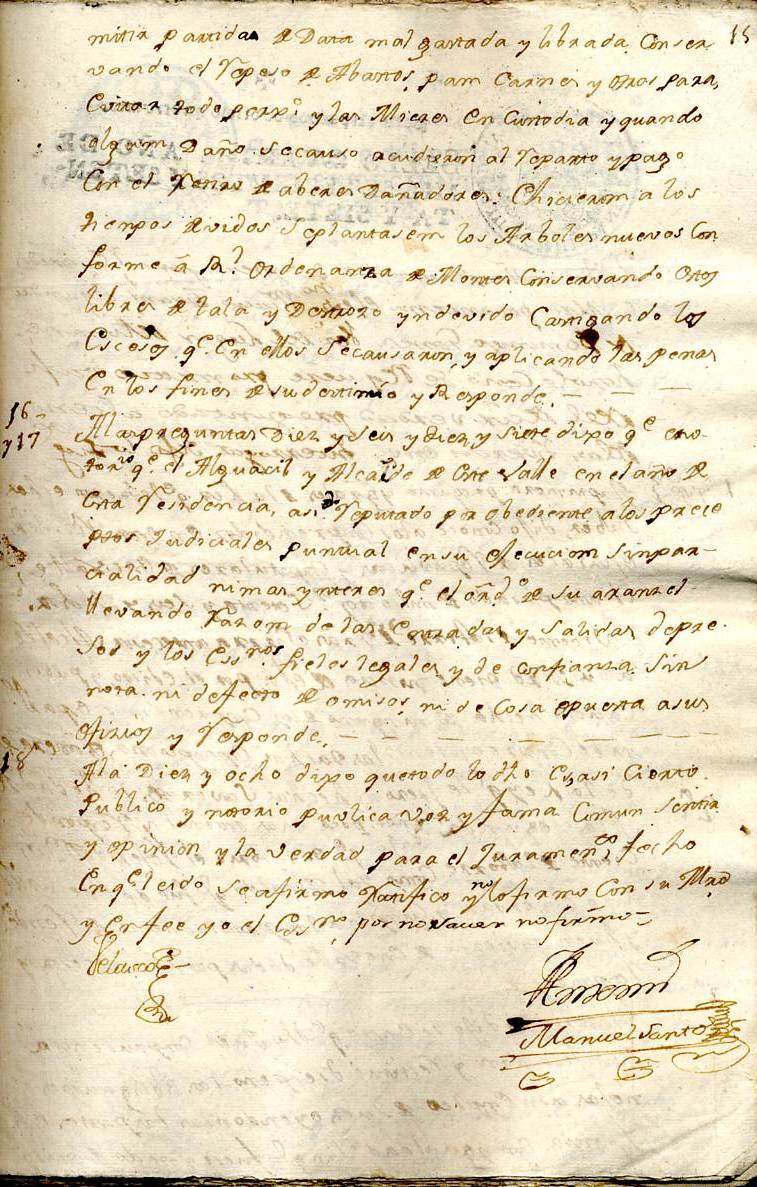 15
mitir partidas de Data mal gastada y librada Conser
vando el repeso de Abastos, pam Carnes y otros para,
Evitar todo perxº. y las Mieses En Custodia y quando
algum Daño Secauso acudieron al reparto y pago
Con el de aberes Dañadores: Chicierom a los
tienpos devidos Seplantasem los Arboles nuevos Con
forme â Rl. Ordenanza de Montes Conservando Estos
libres de tala y Destrozo yndevido Castigando los
Escesos qe. En ellos Secausaron, y aplicando las penas
En los fines de su destinío y Responde.
16
y 17
Alas preguntas Diez y Seis y Diez y Siete dijo qe es no
torio qe. el Alguacil y Alcaide de Este Valle en el año de
Esta residencia, asido reputado por obediente a los prece
ptos Judiciales puntual en su ejecuciom Sinpar-
cialidad ni mas ynteres qe. el ordº. de su aranzel
llevando razom de las Entradas y Salidas depre.
sos y los Essnos. fieles legales y de confianza. Sin
nota. ni defecto de omisos, ni de Cosa opuesta asus
ofizios y responde.
18
Ala Diez y ocho dijo que todo lo dho Es, asi Cierto
Publico y notorio publica voz y fama Comun Sentir
y opinion y la verdad para el Juramento, fecho
En qe. leido Se afirmo Ratifico y no lo firmo Con su Mrd
y En fee yo el Essno. por no saver no firmo=
Velasco
Antemi
Manuel Santos